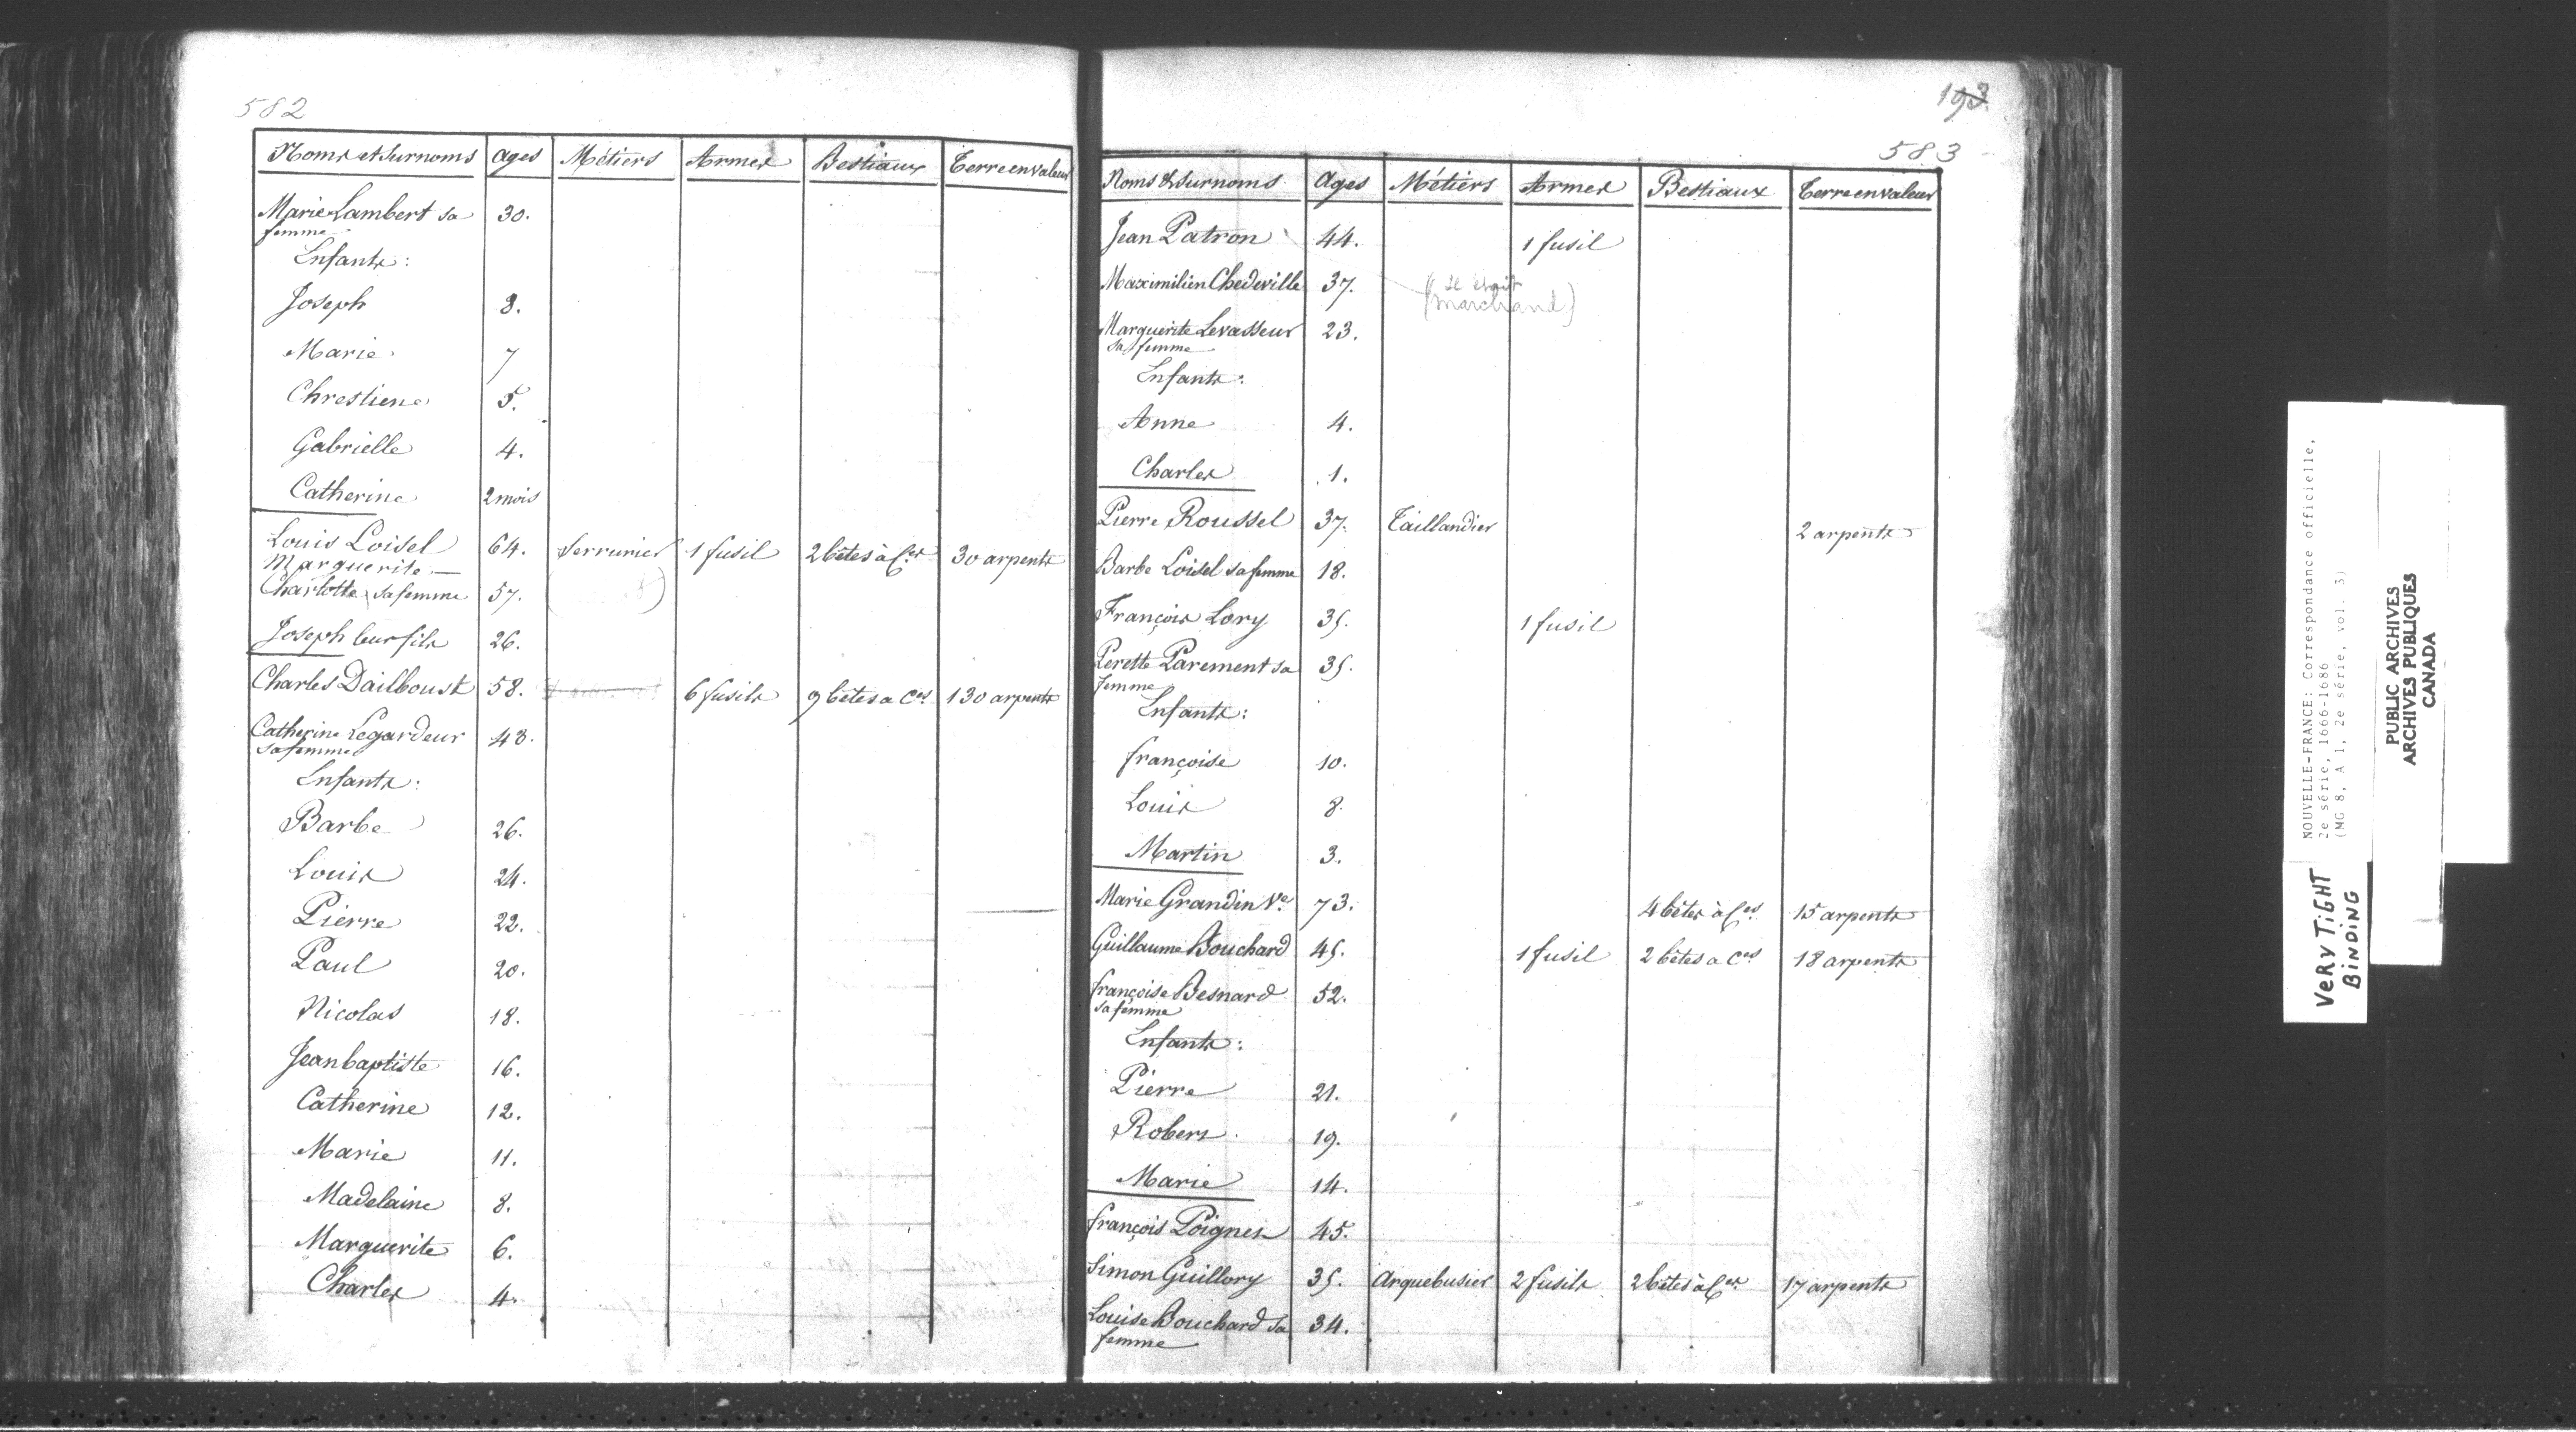 582
Noms et Surnoms ages Métiers Armes Bestiaux Terre en valeur
Marie Lambert sa 30.
femme
Enfants:
Joseph 8.
Marie 7
Chrestiene 5.
Gabrielle 4.
Catherine 2 mois
Louis Loisel 64. Serrurier 1 fusil 2 bêtes à Ces 30 arpents
Marguerite
Charlotte sa femme 57.
Joseph leur fils 26.
Charles Dailboust 58. 6 fusils 9 bêtes a Ces 130 arpents
Catherine Legardeur 43.
sa femme
Enfants:
Barbe 26.
Louis 24.
Pierre 22.
Paul 20.
Nicolas 18.
Jean baptiste 16.
Catherine 12.
Marie 11.
Madelaine 8.
Marguerite 6.
Charles 4.
193
583
Noms & Surnoms Ages Métiers Armes Bestiaux Terre en valeur
Jean Patron 44. 1 fusil
Maximilien Chedeville 37. (Il était
marchand)
Marguerite Levasseur 23.
sa femme
Enfants:
Anne 4.
Charles 1.
Pierre Roussel 37. Taillandier 2 arpents
Barbe Loisel sa femme 18.
François Lory 35. 1 fusil
Perette Parement sa 35.
femme
Enfants:
françoise 10.
Louis 8.
Martin 3.
Marie Grandin Ve. 73. 4 bêtes à Ces 15 arpents
Guillaume Bouchard 45. 1 fusil 2 bêtes a Ces 18 arpents
françoise Besnard 52.
sa femme
Enfants:
Pierre 21.
Robert 19.
Marie 14.
françois Poignet 45.
Simon Guillory 35. Arquebusier 2 fusils 2 bêtes à Ces 17 arpents
Louise Bouchard sa 34.
femme
NOUVELLE-FRANCE: Correspondance officielle,
2e série, 1666-1686
(MG 8, A 1, 2e série, vol. 3)
VERY TIGHT
BINDING
PUBLIC ARCHIVES
ARCHIVES PUBLIQUES
CANADA